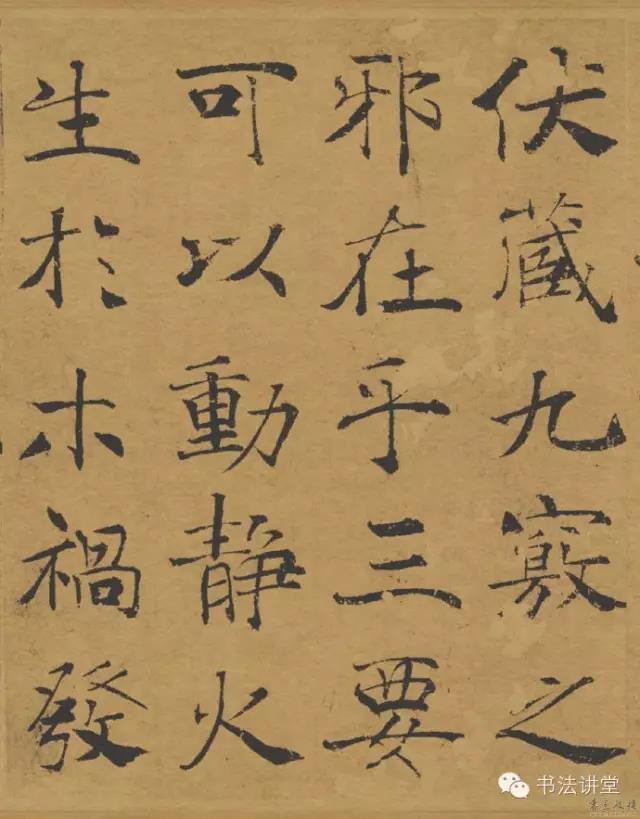 伏藏九竅之
邪在乎三要
可以動靜火
生於木禍發
书法讲堂